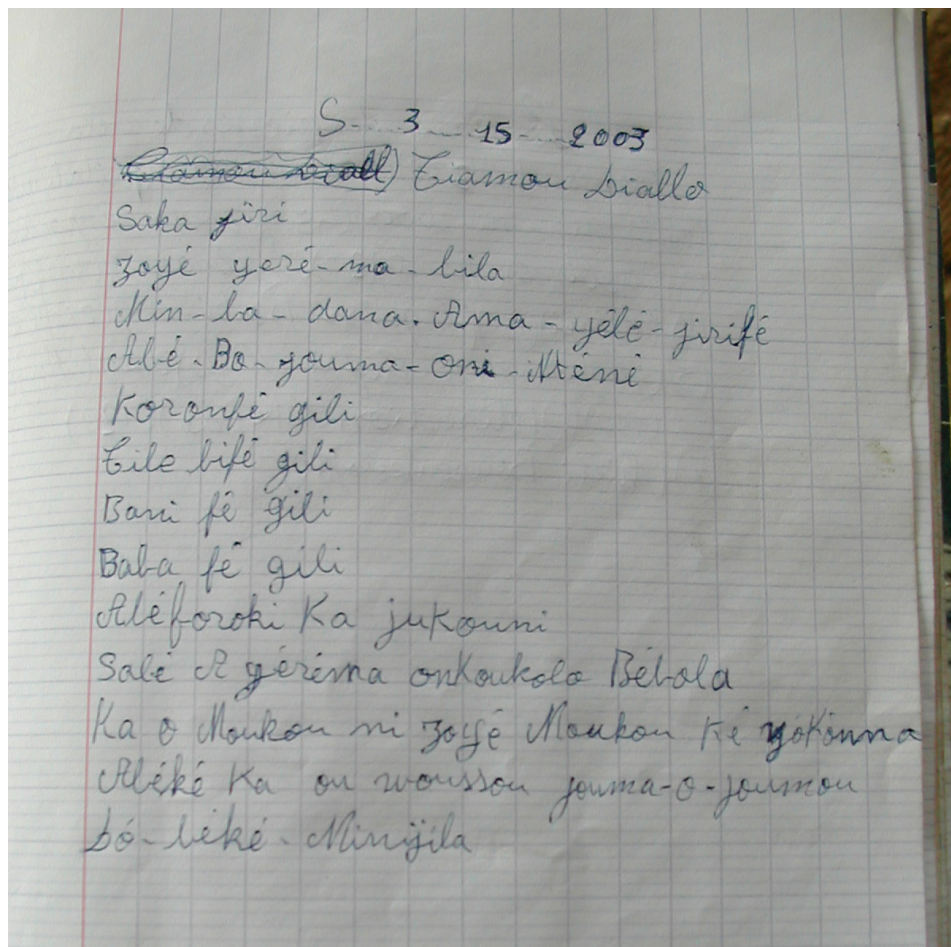 S - 3 - 15 - 2003
Tiamou Diallo
Saka jiri
Zoyé yeré-ma-bila
Min-ba-dana. Ama-yélé-jirifé
Abé-Bo-youma-oni-Néné
Koronfé gili
Tile bifé gili
Bani fé gili
Baba fé gili
Abéforoki Ka jukouni
Sabé A yéréma onkoukolo Bébola
Ka o Moukou ni zoyé Moukou Ké yókónna
Abéké Ka ou woussou jouma-o-joumou
Dó-béké-Minijila